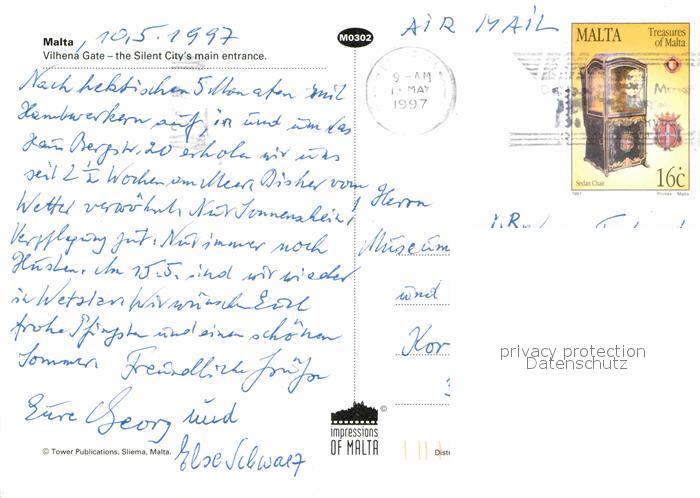 Malta, 10.5.1997
Vilhena Gate – the Silent City's main entrance.
M0302
AIR MAIL
MALTA Treasures of Malta
9 - AM
MAY
1997
Sedan Chair
16c
1997 Printex Malta
Nach hektischen 5 Monaten mit
Handwerkern auf, in und um das
Haus Bergstr. 20 erholen wir uns
seit 2 1/2 Wochen am Meer. Bisher vom
Wetter verwöhnt. Nur Sonnenschein!
Verpflegung gut. Nur immer noch
Husten. Am 15.5. sind wir wieder
in Wetzlar. Wir wünschen Euch
frohe Pfingsten und einen schönen
Sommer. Freundliche Grüße
Eure Georg und
Else Schwarz
Herrn
Museum
und
Kor
privacy protection
Datenschutz
impressions
OF MALTA
©
© Tower Publications, Sliema, Malta.
Distr